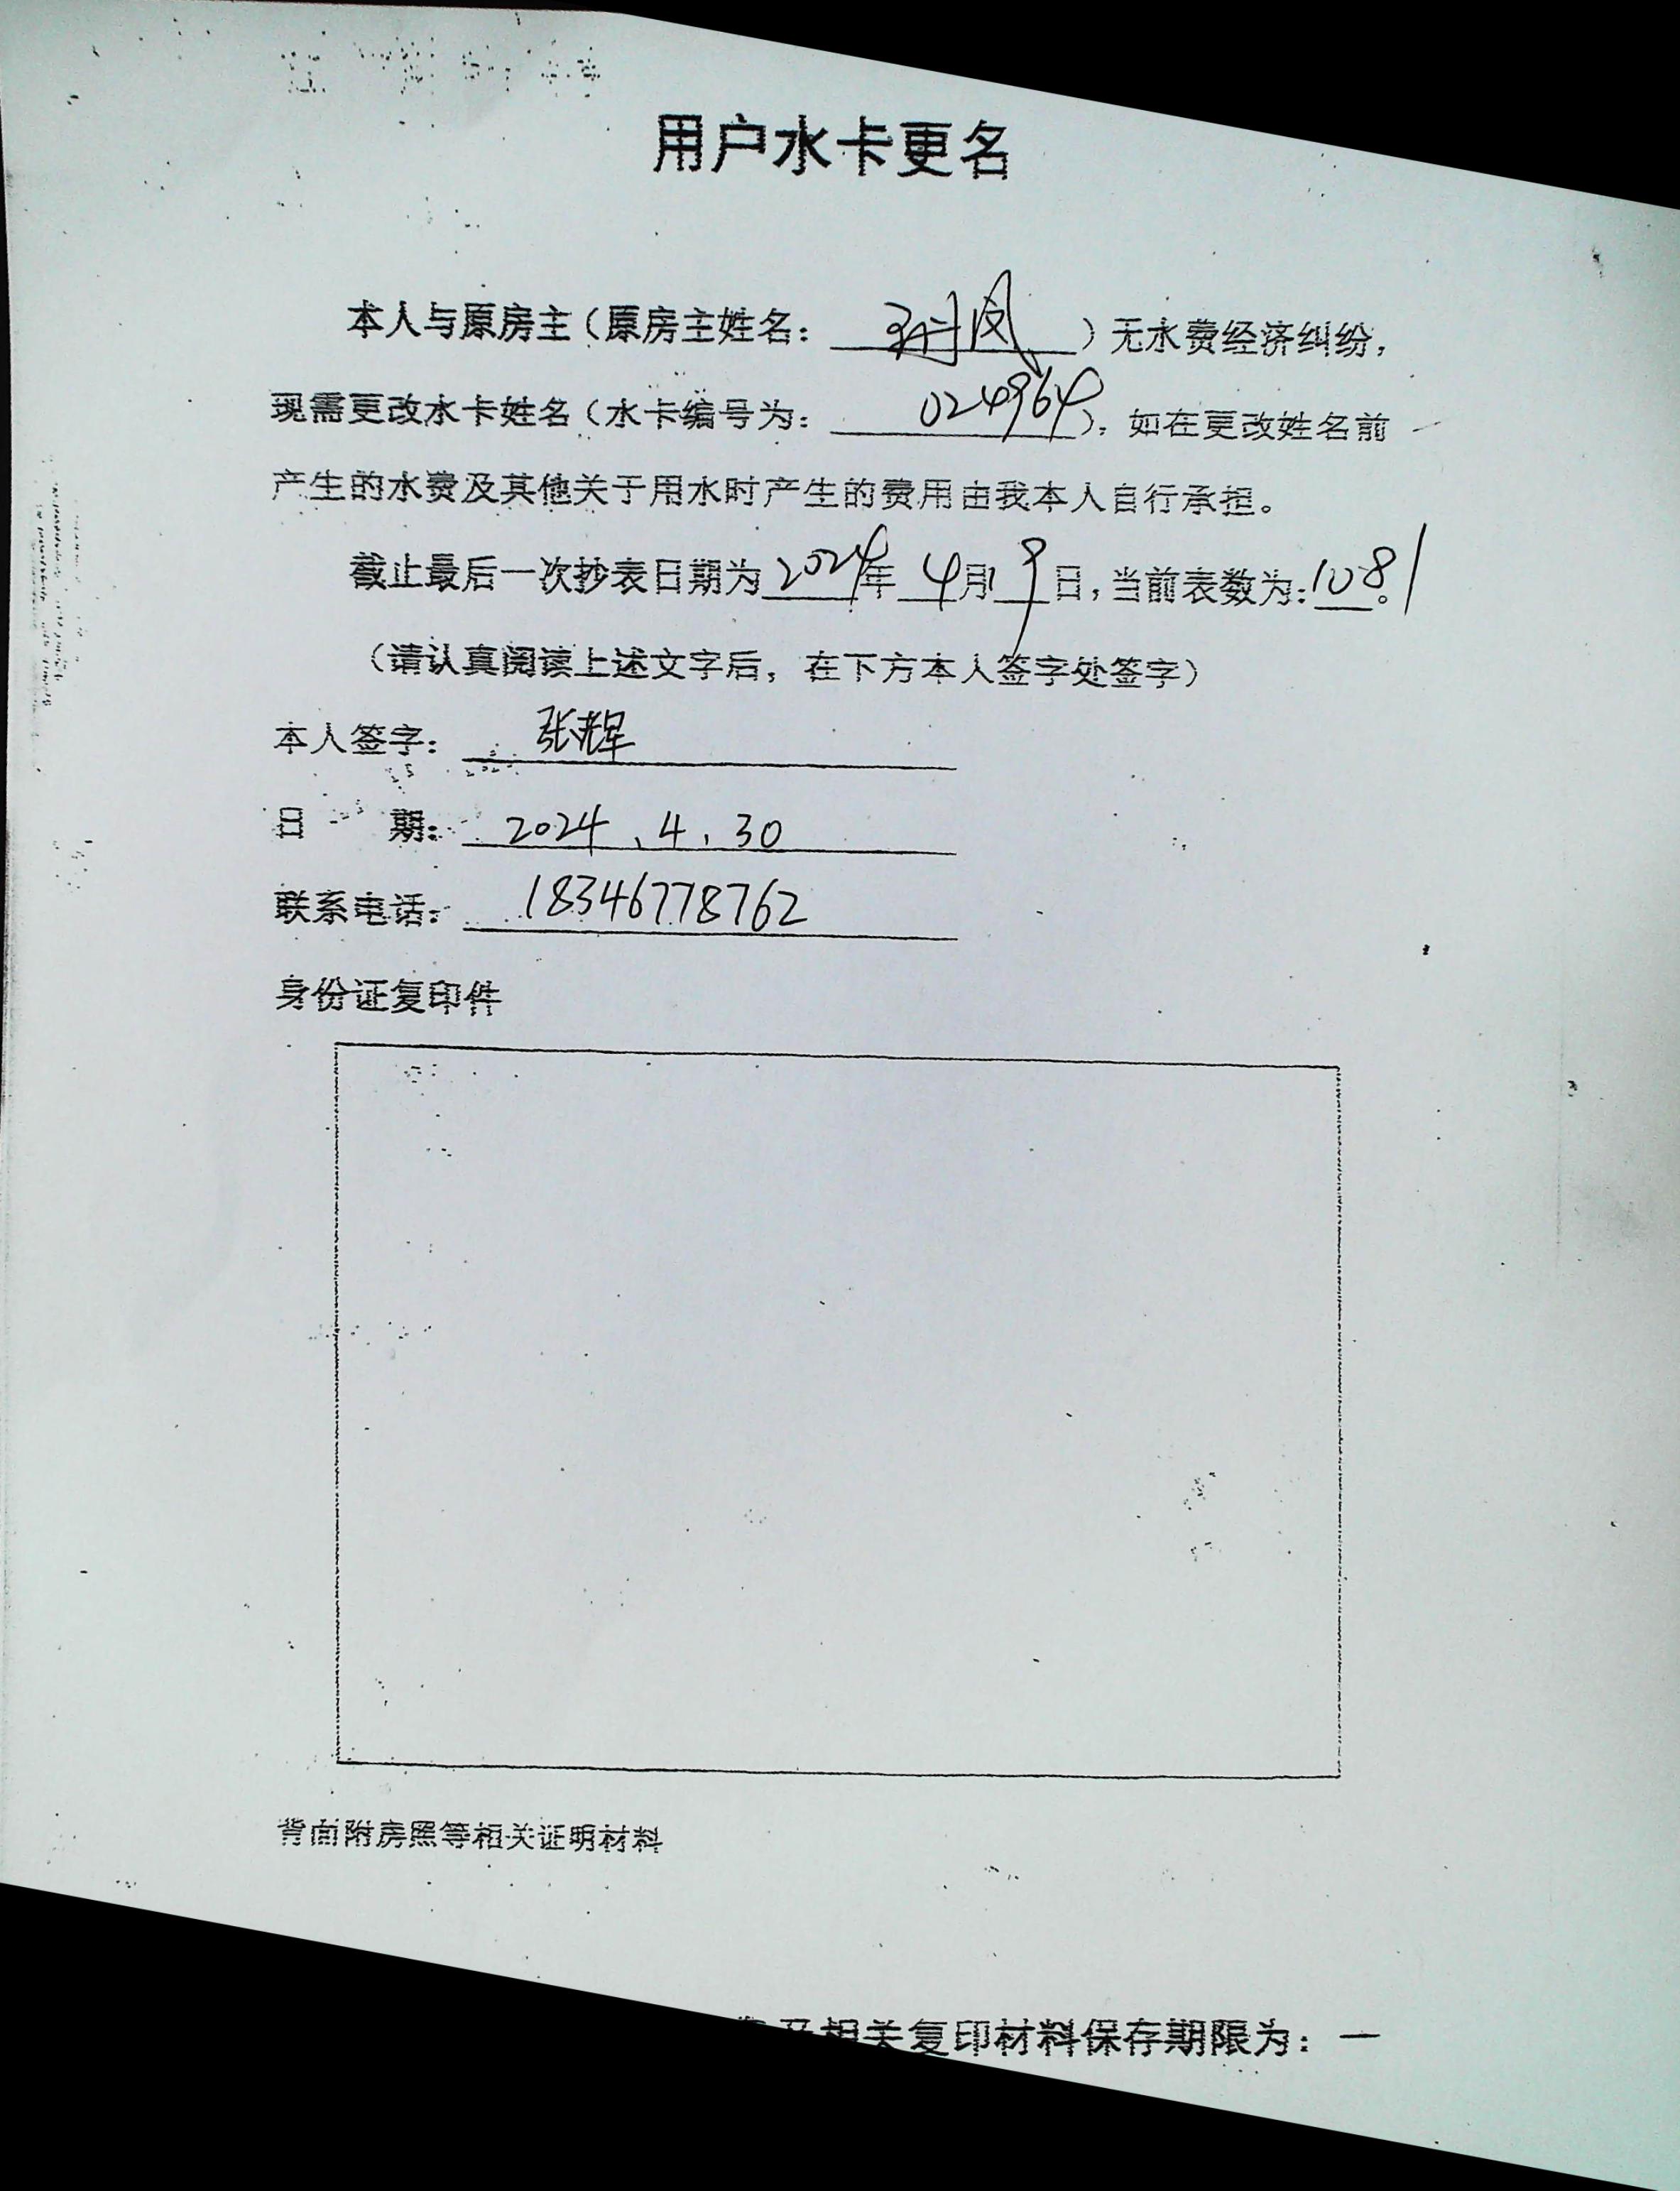 用户水卡更名
本人与原房主（原房主姓名：凤）无水费经济纠纷，
现需更改水卡姓名（水卡编号为：024964），如在更改姓名前
产生的水费及其他关于用水时产生的费用由我本人自行承担。
截止最后一次抄表日期为2024年4月9日，当前表数为：1081。
（请认真阅读上述文字后，在下方本人签字处签字）
本人签字：张辉
日 期：2024.4.30
联系电话：18346778762
身份证复印件
背面附房照等相关证明材料
及相关复印材料保存期限为：一